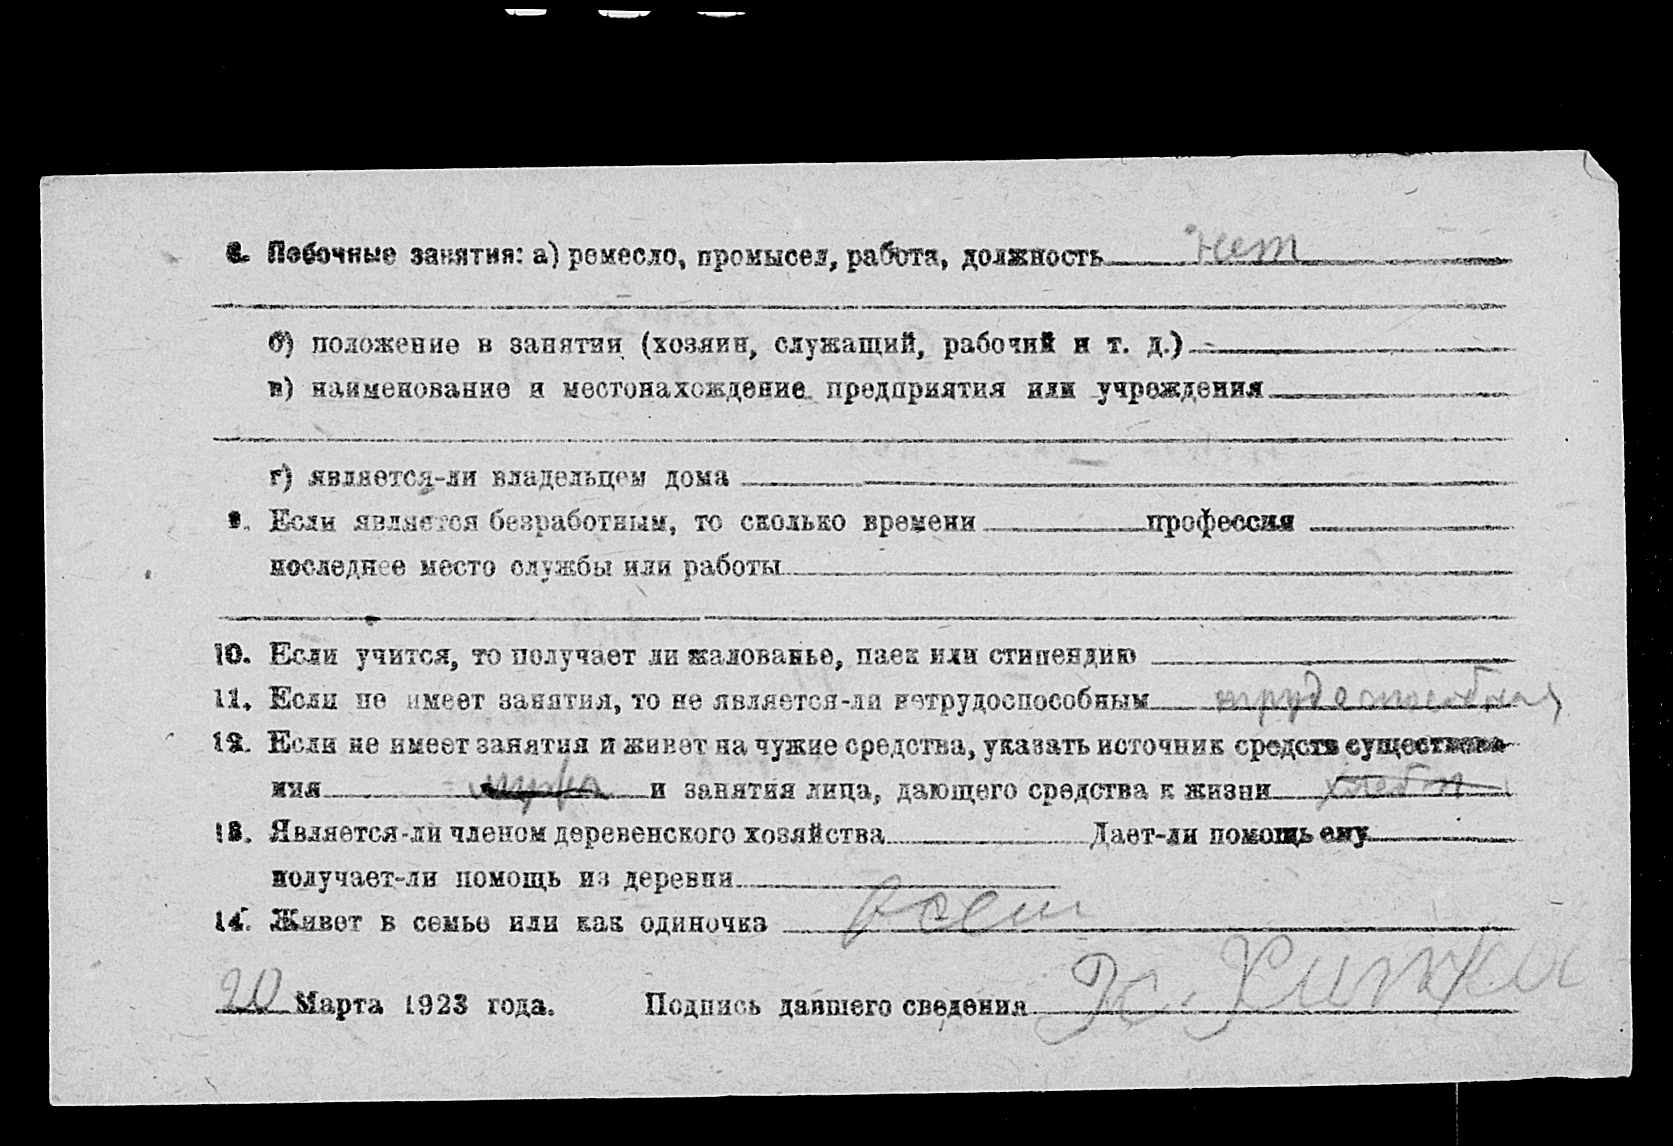 8. Побочные занятия: а) ремесло, промысел, работа, должность нет
б) положение в занятии (хозяин, служащий, рабочий и т. д.) -
в) наименование и местонахождение предприятия или учреждения
г) является-ли владельцем дома
9. Если является безработным, то сколько времени профессия
последнее место службы или работы
10. Если учится, то получает ли жалованье, паек или стипендию
11. Если не имеет занятия, то не является-ли нетрудоспособным трудоспособная
12. Если не имеет занятия и живет на чужие средства, указать источник средств существова-
ния мужа и занятия лица, дающего средства к жизни
13. Является-ли членом деревенского хозяйства Дает-ли помощь ему
получает-ли помощь из деревни
14. Живет в семье или как одиночка
20 Марта 1923 года. Подпись давшего сведения